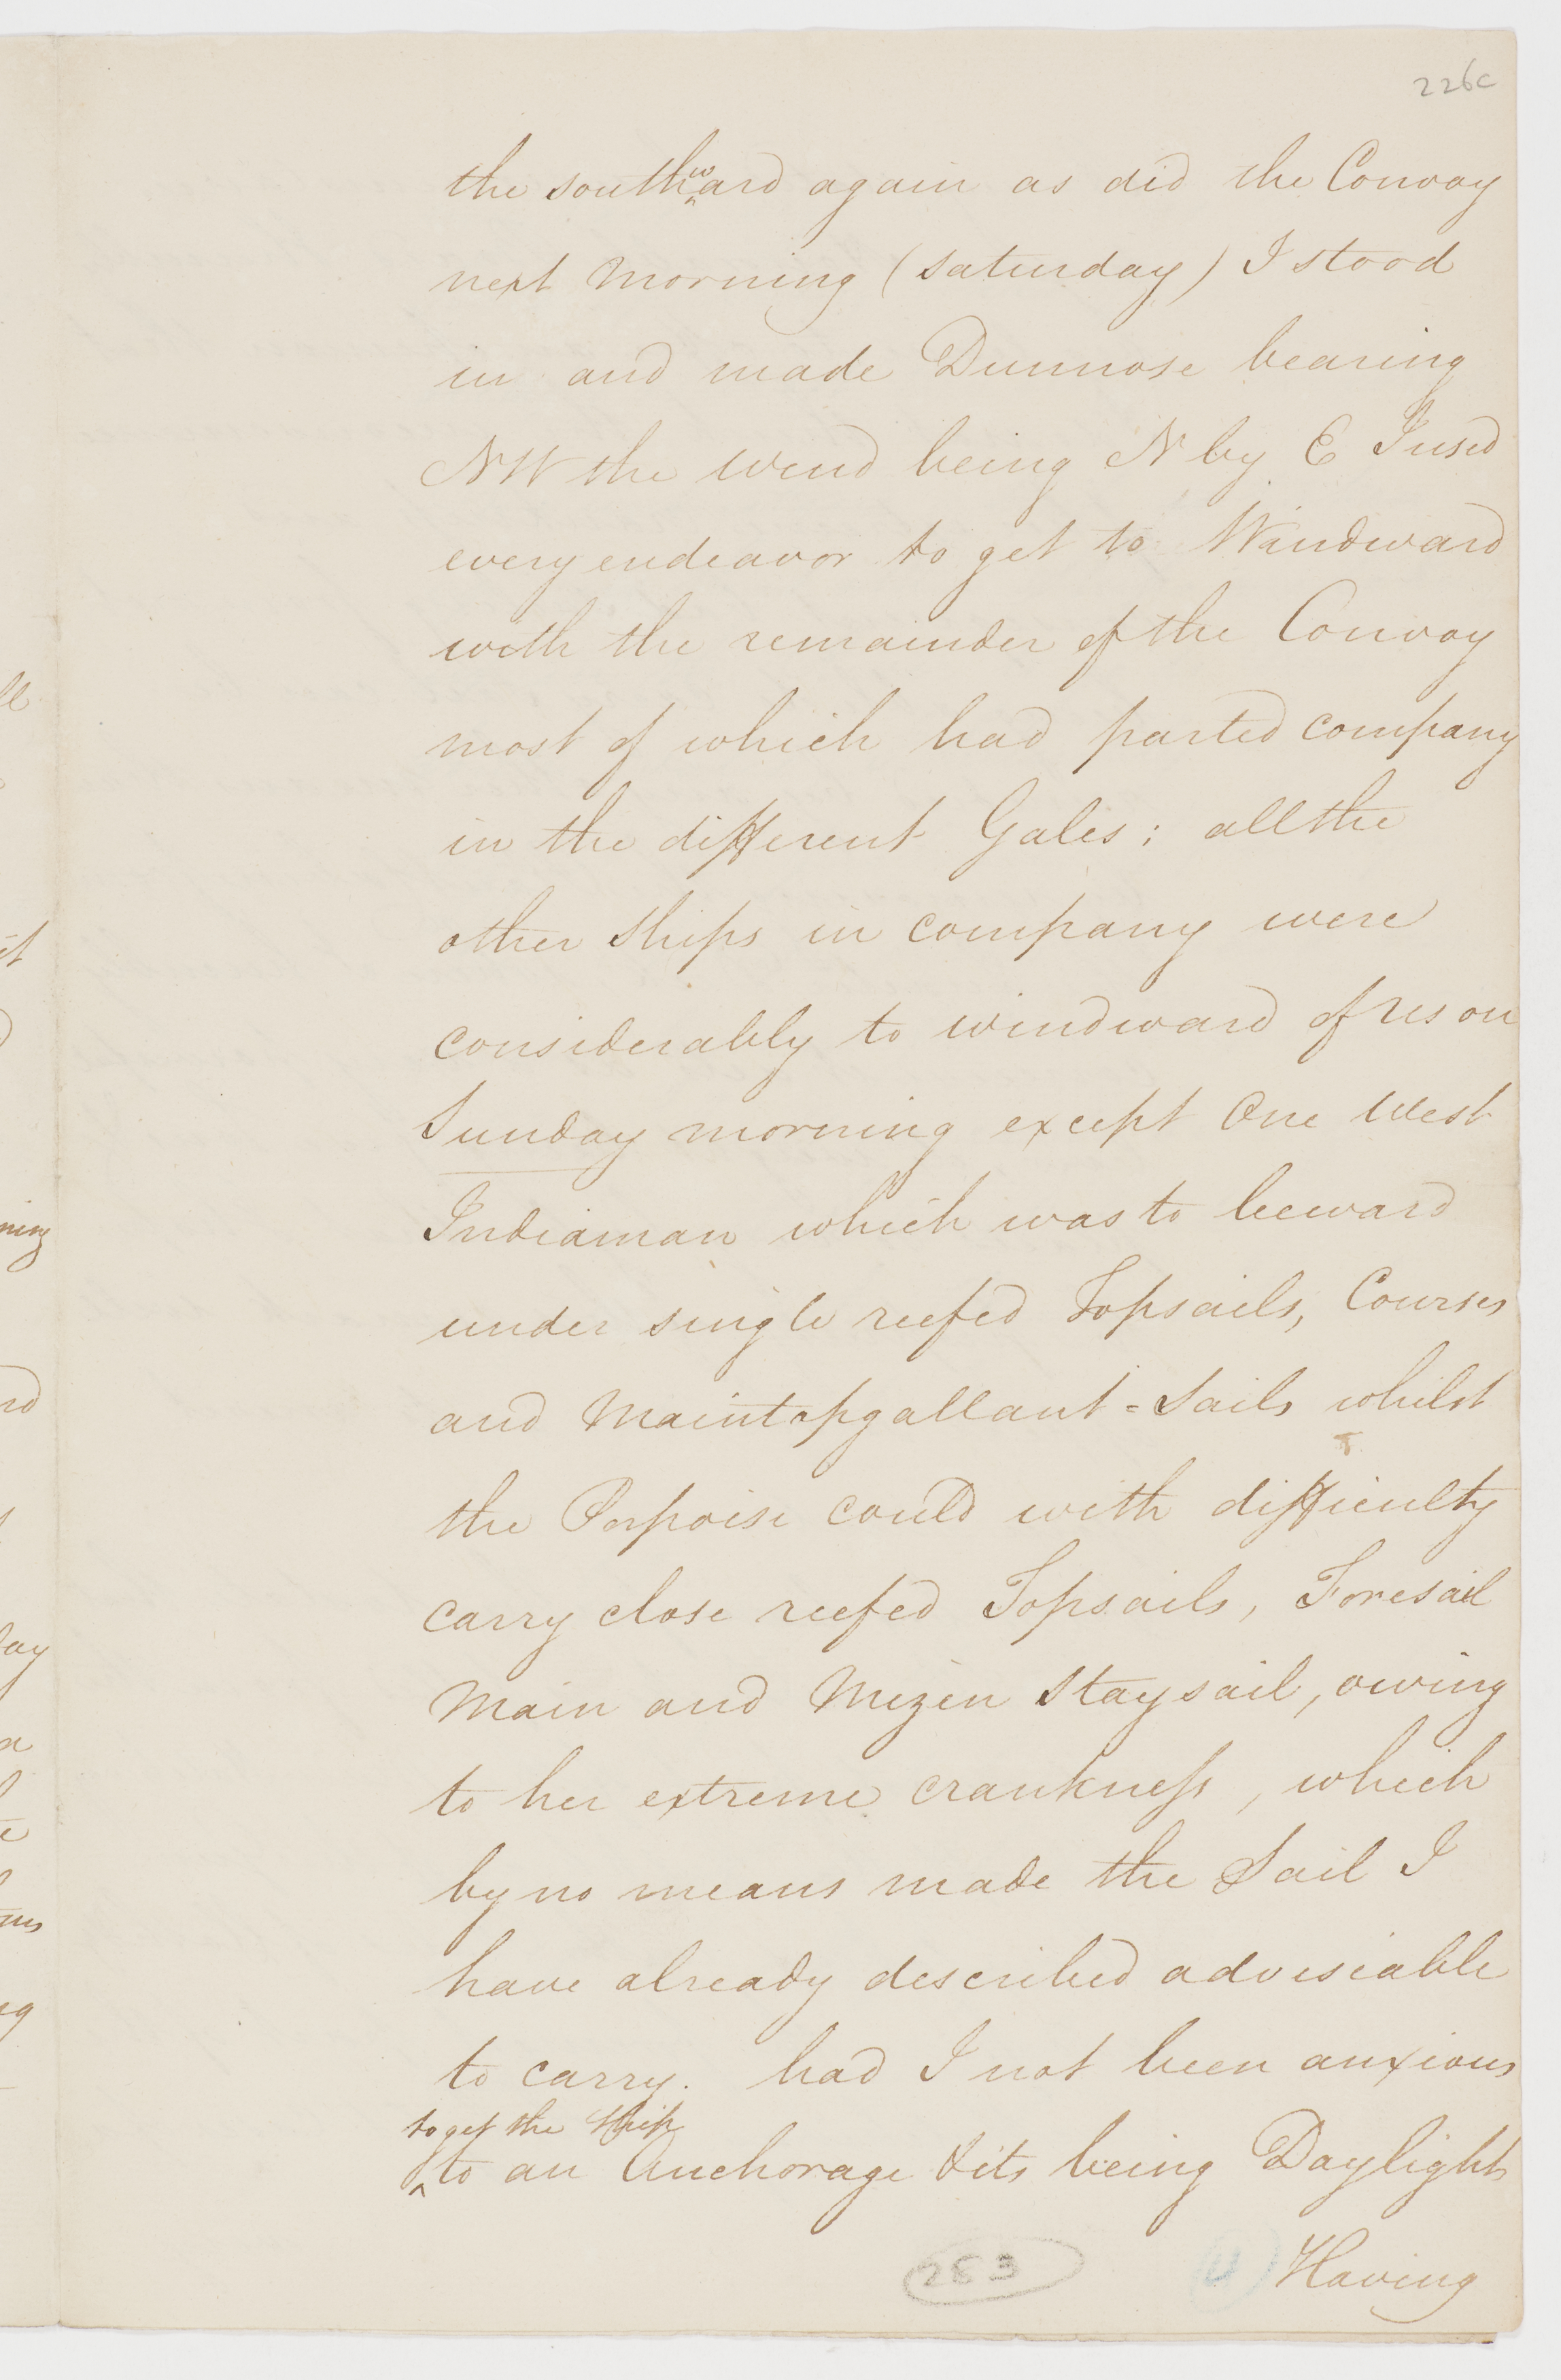 226c
the southward again as did the Convoy
next morning (Saturday) I stood
in and made Dunnose bearing
NW the wind being N by E I used
every endeavor to get to Windward
with the remainder of the Convoy
most of which had parted company
in the different Gales; all the
other Ships in company were
considerably to windward of us on
Sunday morning except One West
Indiaman which was to leeward
under single reefed Topsails, Courses
and Maintopgallant=Sails whilst
the Porpoise could with difficulty
carry close reefed Topsails, Foresail
Main and Mizen Staysail, owing
to her extreme crankness, which
by no means made the Sail I
have already described adviseable
to carry. had I not been anxious
to get the Ship
to an Anchorage & its being Daylight
283
Having
ll
it
ning
nd
day
a
ng